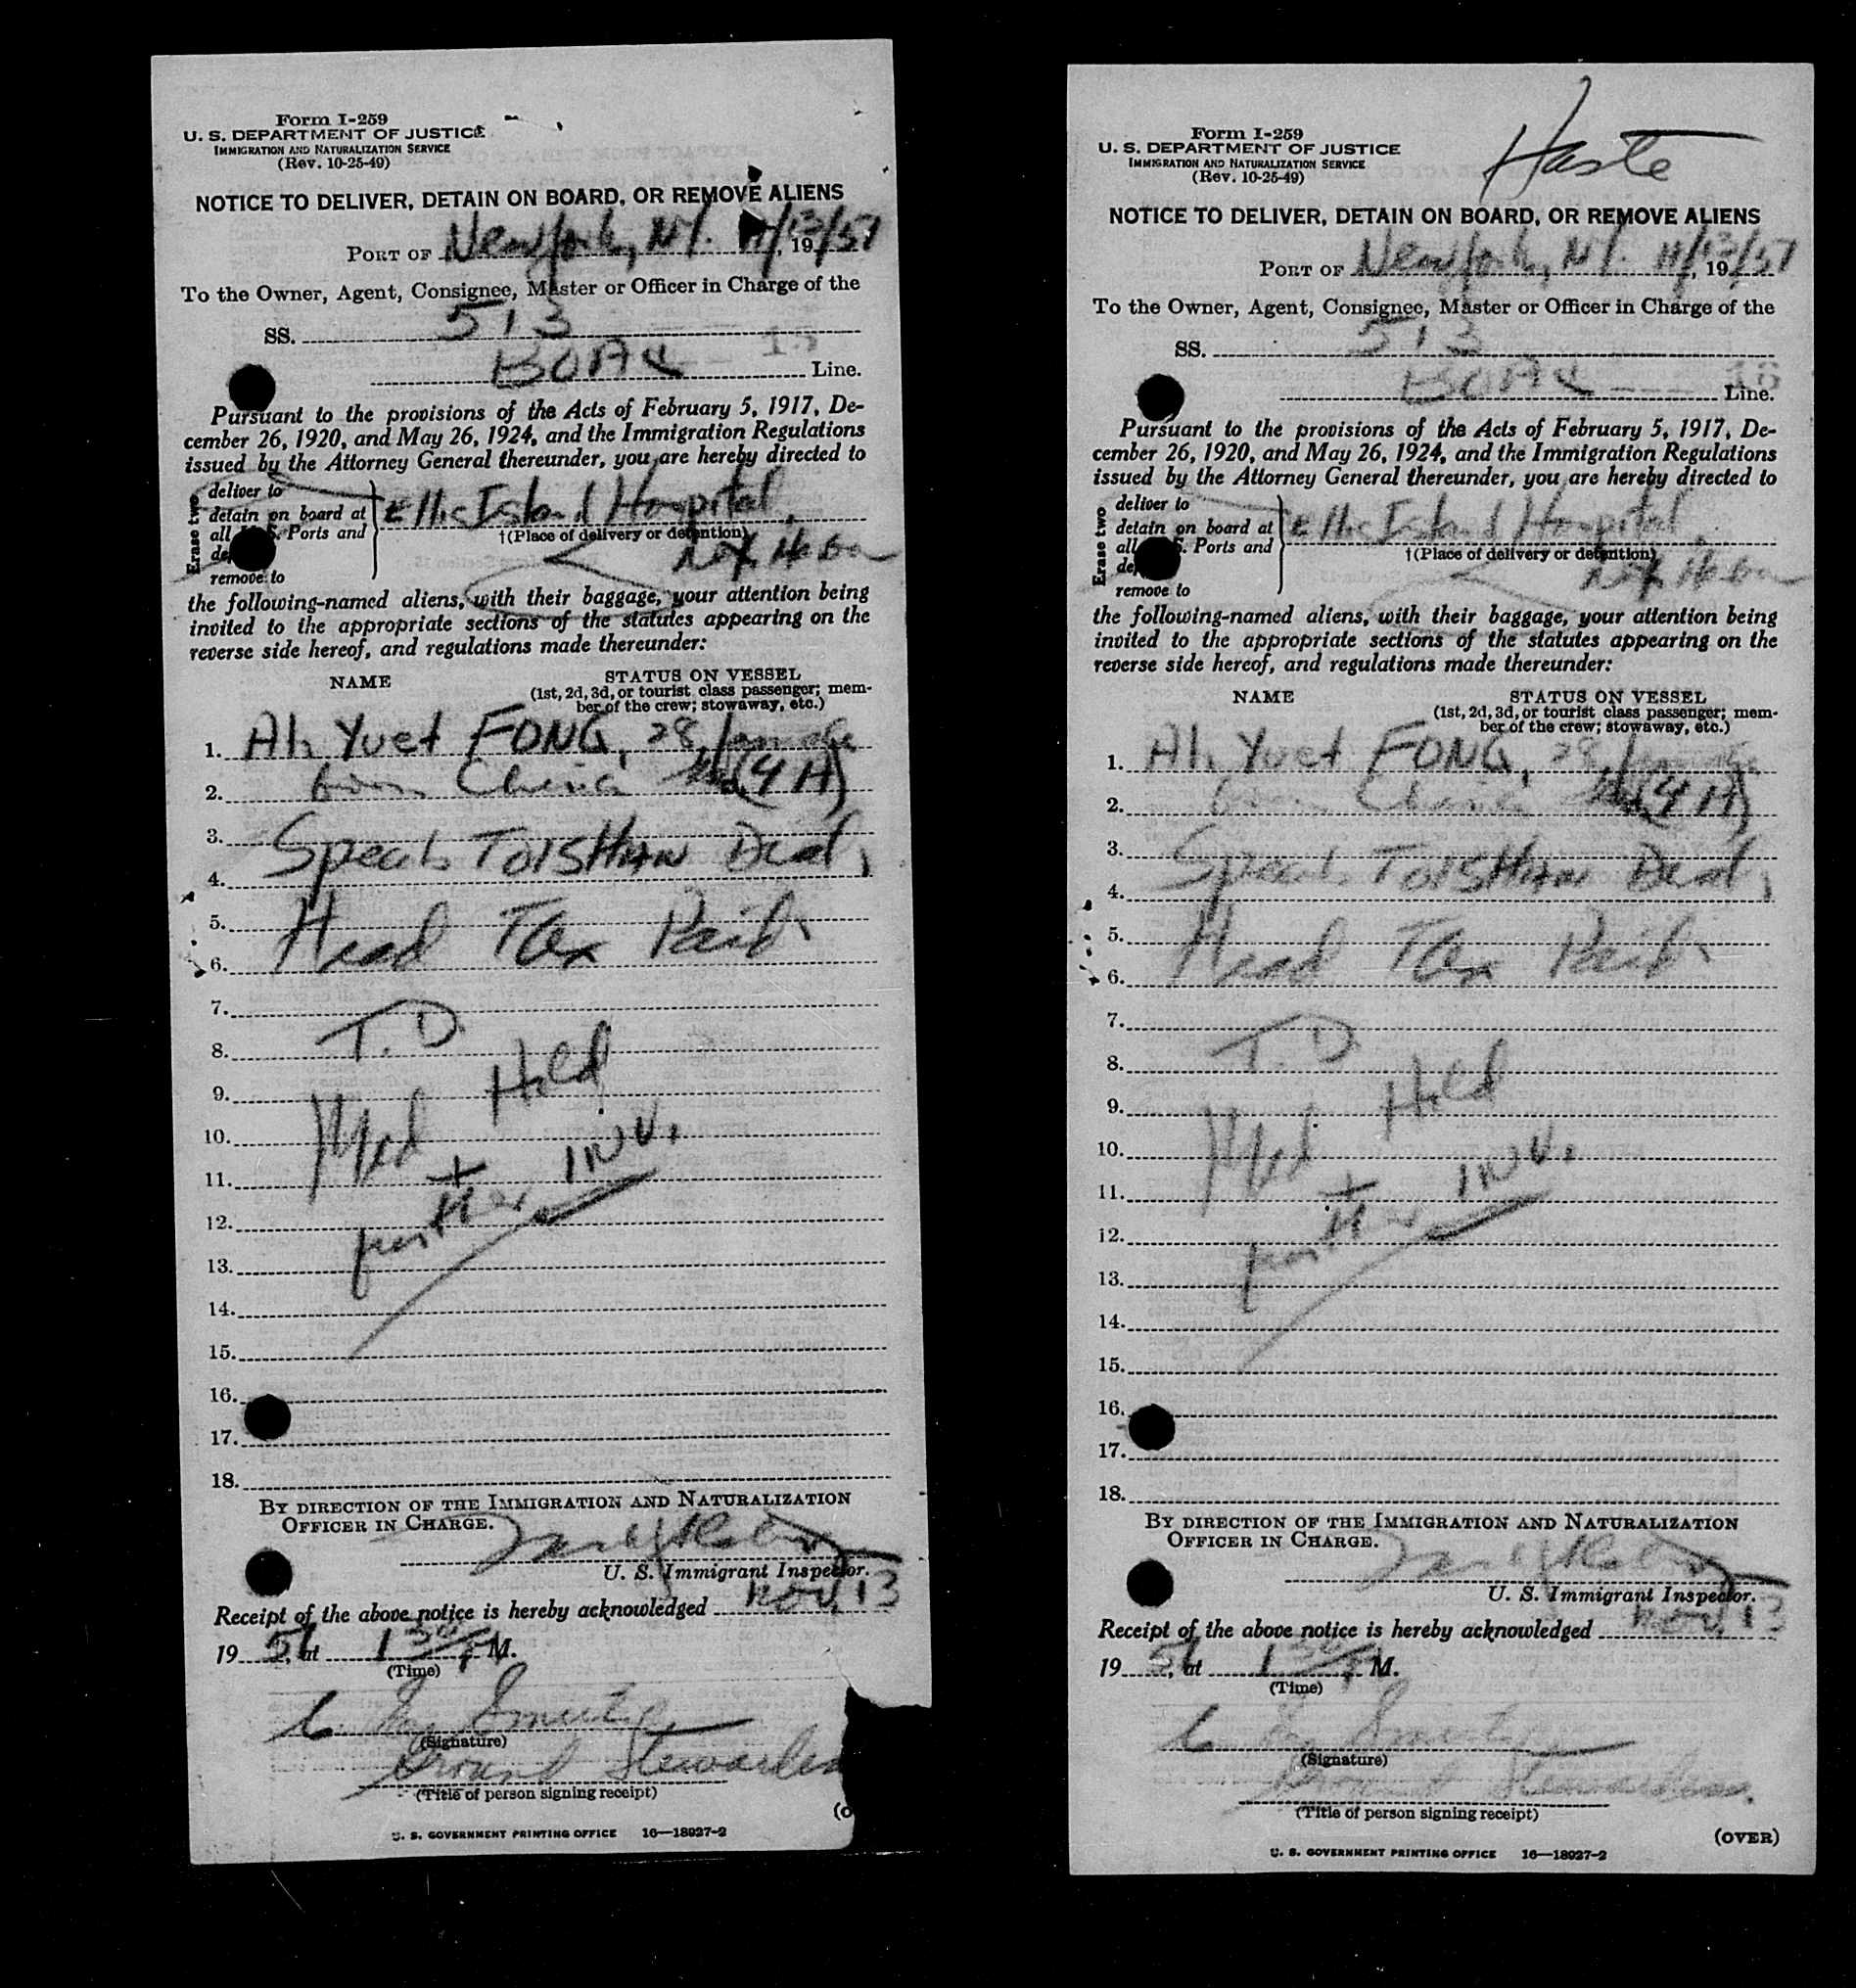 Form I-259
U. S. DEPARTMENT OF JUSTICE
IMMIGRATION AND NATURALIZATION SERVICE
(Rev. 10-25-49)
NOTICE TO DELIVER, DETAIN ON BOARD, OR REMOVE ALIENS
PORT OF New York, N.Y. 11/13/51, 19
To the Owner, Agent, Consignee, Master or Officer in Charge of the
SS. 513
BOAC Line.
Pursuant to the provisions of the Acts of February 5, 1917, De-
cember 26, 1920, and May 26, 1924, and the Immigration Regulations
issued by the Attorney General thereunder, you are hereby directed to
Erase two
deliver to
detain on board at
all S. Ports and
de
remove to
Ellis Island Hospital
†(Place of delivery or detention)
the following-named aliens, with their baggage, your attention being
invited to the appropriate sections of the statutes appearing on the
reverse side hereof, and regulations made thereunder:
NAME
STATUS ON VESSEL
(1st, 2d, 3d, or tourist class passenger; mem-
ber of the crew; stowaway, etc.)
1. Ah Yuet FONG, 28, female
2. born China (4 H)
3. Speaks TOISHAN Dial,
4.
5. Head Tax Paid
6.
7. T. D.
8.
9. Med Hold
10.
11. + INV.
12. further
13.
14.
15.
16.
17.
18.
BY DIRECTION OF THE IMMIGRATION AND NATURALIZATION
OFFICER IN CHARGE.
U. S. Immigrant Inspector.
Receipt of the above notice is hereby acknowledged Nov. 13
19 51, at 1 30 P M.
(Time)
(Signature)
Ground Stewardess
(Title of person signing receipt)
(O
U. S. GOVERNMENT PRINTING OFFICE 16—18927-2
Haste
Form I-259
U. S. DEPARTMENT OF JUSTICE
IMMIGRATION AND NATURALIZATION SERVICE
(Rev. 10-25-49)
NOTICE TO DELIVER, DETAIN ON BOARD, OR REMOVE ALIENS
PORT OF New York, N.Y. 11/13/51, 19
To the Owner, Agent, Consignee, Master or Officer in Charge of the
SS. 513
BOAC Line.
Pursuant to the provisions of the Acts of February 5, 1917, De-
cember 26, 1920, and May 26, 1924, and the Immigration Regulations
issued by the Attorney General thereunder, you are hereby directed to
Erase two
deliver to
detain on board at
all S. Ports and
de
remove to
Ellis Island Hospital
†(Place of delivery or detention)
the following-named aliens, with their baggage, your attention being
invited to the appropriate sections of the statutes appearing on the
reverse side hereof, and regulations made thereunder:
NAME
STATUS ON VESSEL
(1st, 2d, 3d, or tourist class passenger; mem-
ber of the crew; stowaway, etc.)
1. Ah Yuet FONG, 28, female
2. born China (4 H)
3. Speaks TOISHAN Dial,
4.
5. Head Tax Paid
6.
7. T. D.
8.
9. Med Hold
10.
11. + INV.
12. further
13.
14.
15.
16.
17.
18.
BY DIRECTION OF THE IMMIGRATION AND NATURALIZATION
OFFICER IN CHARGE.
U. S. Immigrant Inspector.
Receipt of the above notice is hereby acknowledged Nov. 13
19 51, at 1 30 P M.
(Time)
(Signature)
Ground Stewardess
(Title of person signing receipt)
(OVER)
U. S. GOVERNMENT PRINTING OFFICE 16—18927-2